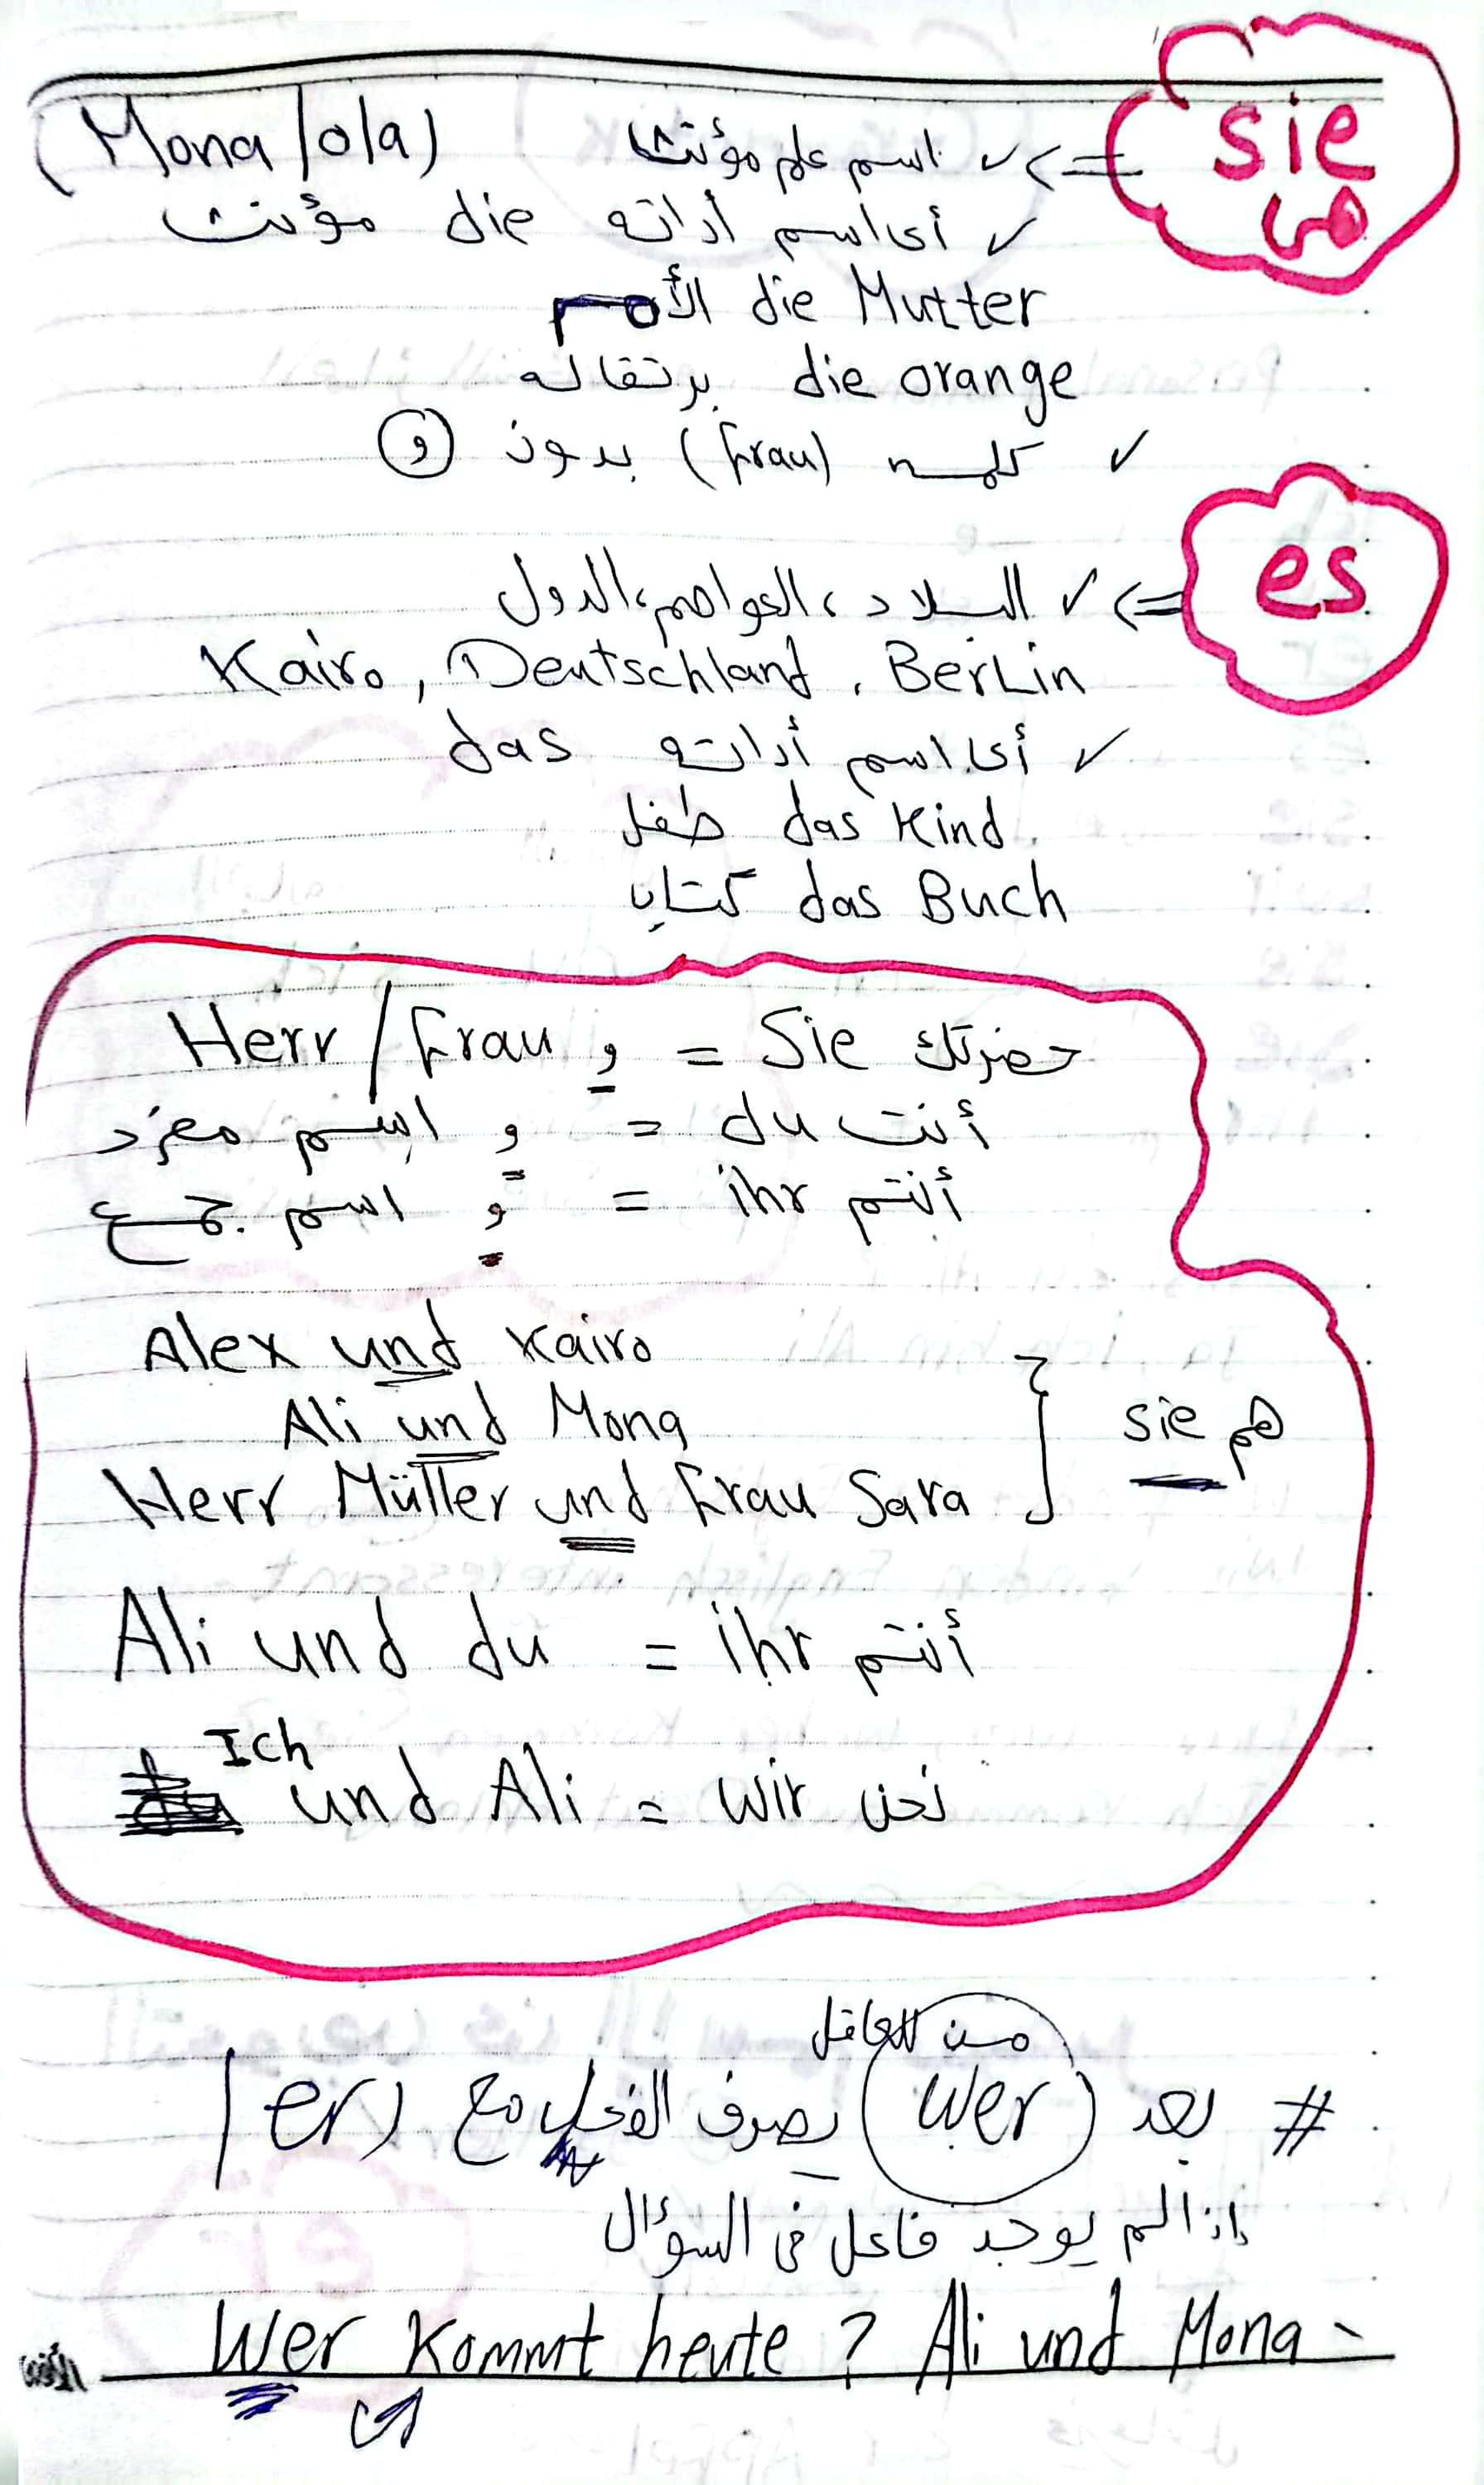 sie
هى
<= ✓ اسم علم مؤنث (Mona / ola)
✓ أى اسم أداته die مؤنث
die Mutter الأم
die orange برتقاله
✓ كلمه (Frau) بدون (و)
es
<= ✓ البلاد، العواصم، الدول
Kairo, Deutschland, Berlin
✓ أى اسم أداته das
das Kind طفل
das Buch كتاب
Herr / Frau و = Sie حضرتك
اسم مفرد و = du أنت
اسم جمع و = ihr أنتم
Alex und Kairo
Ali und Mona
Herr Müller und Frau Sara } sie هم
Ali und du = ihr أنتم
Ich und Ali = wir نحن
من للعاقل
# بعد (wer) يصرف الفعل مع (er)
إذا لم يوجد فاعل فى السؤال
Wer kommt heute ? Ali und Mona -